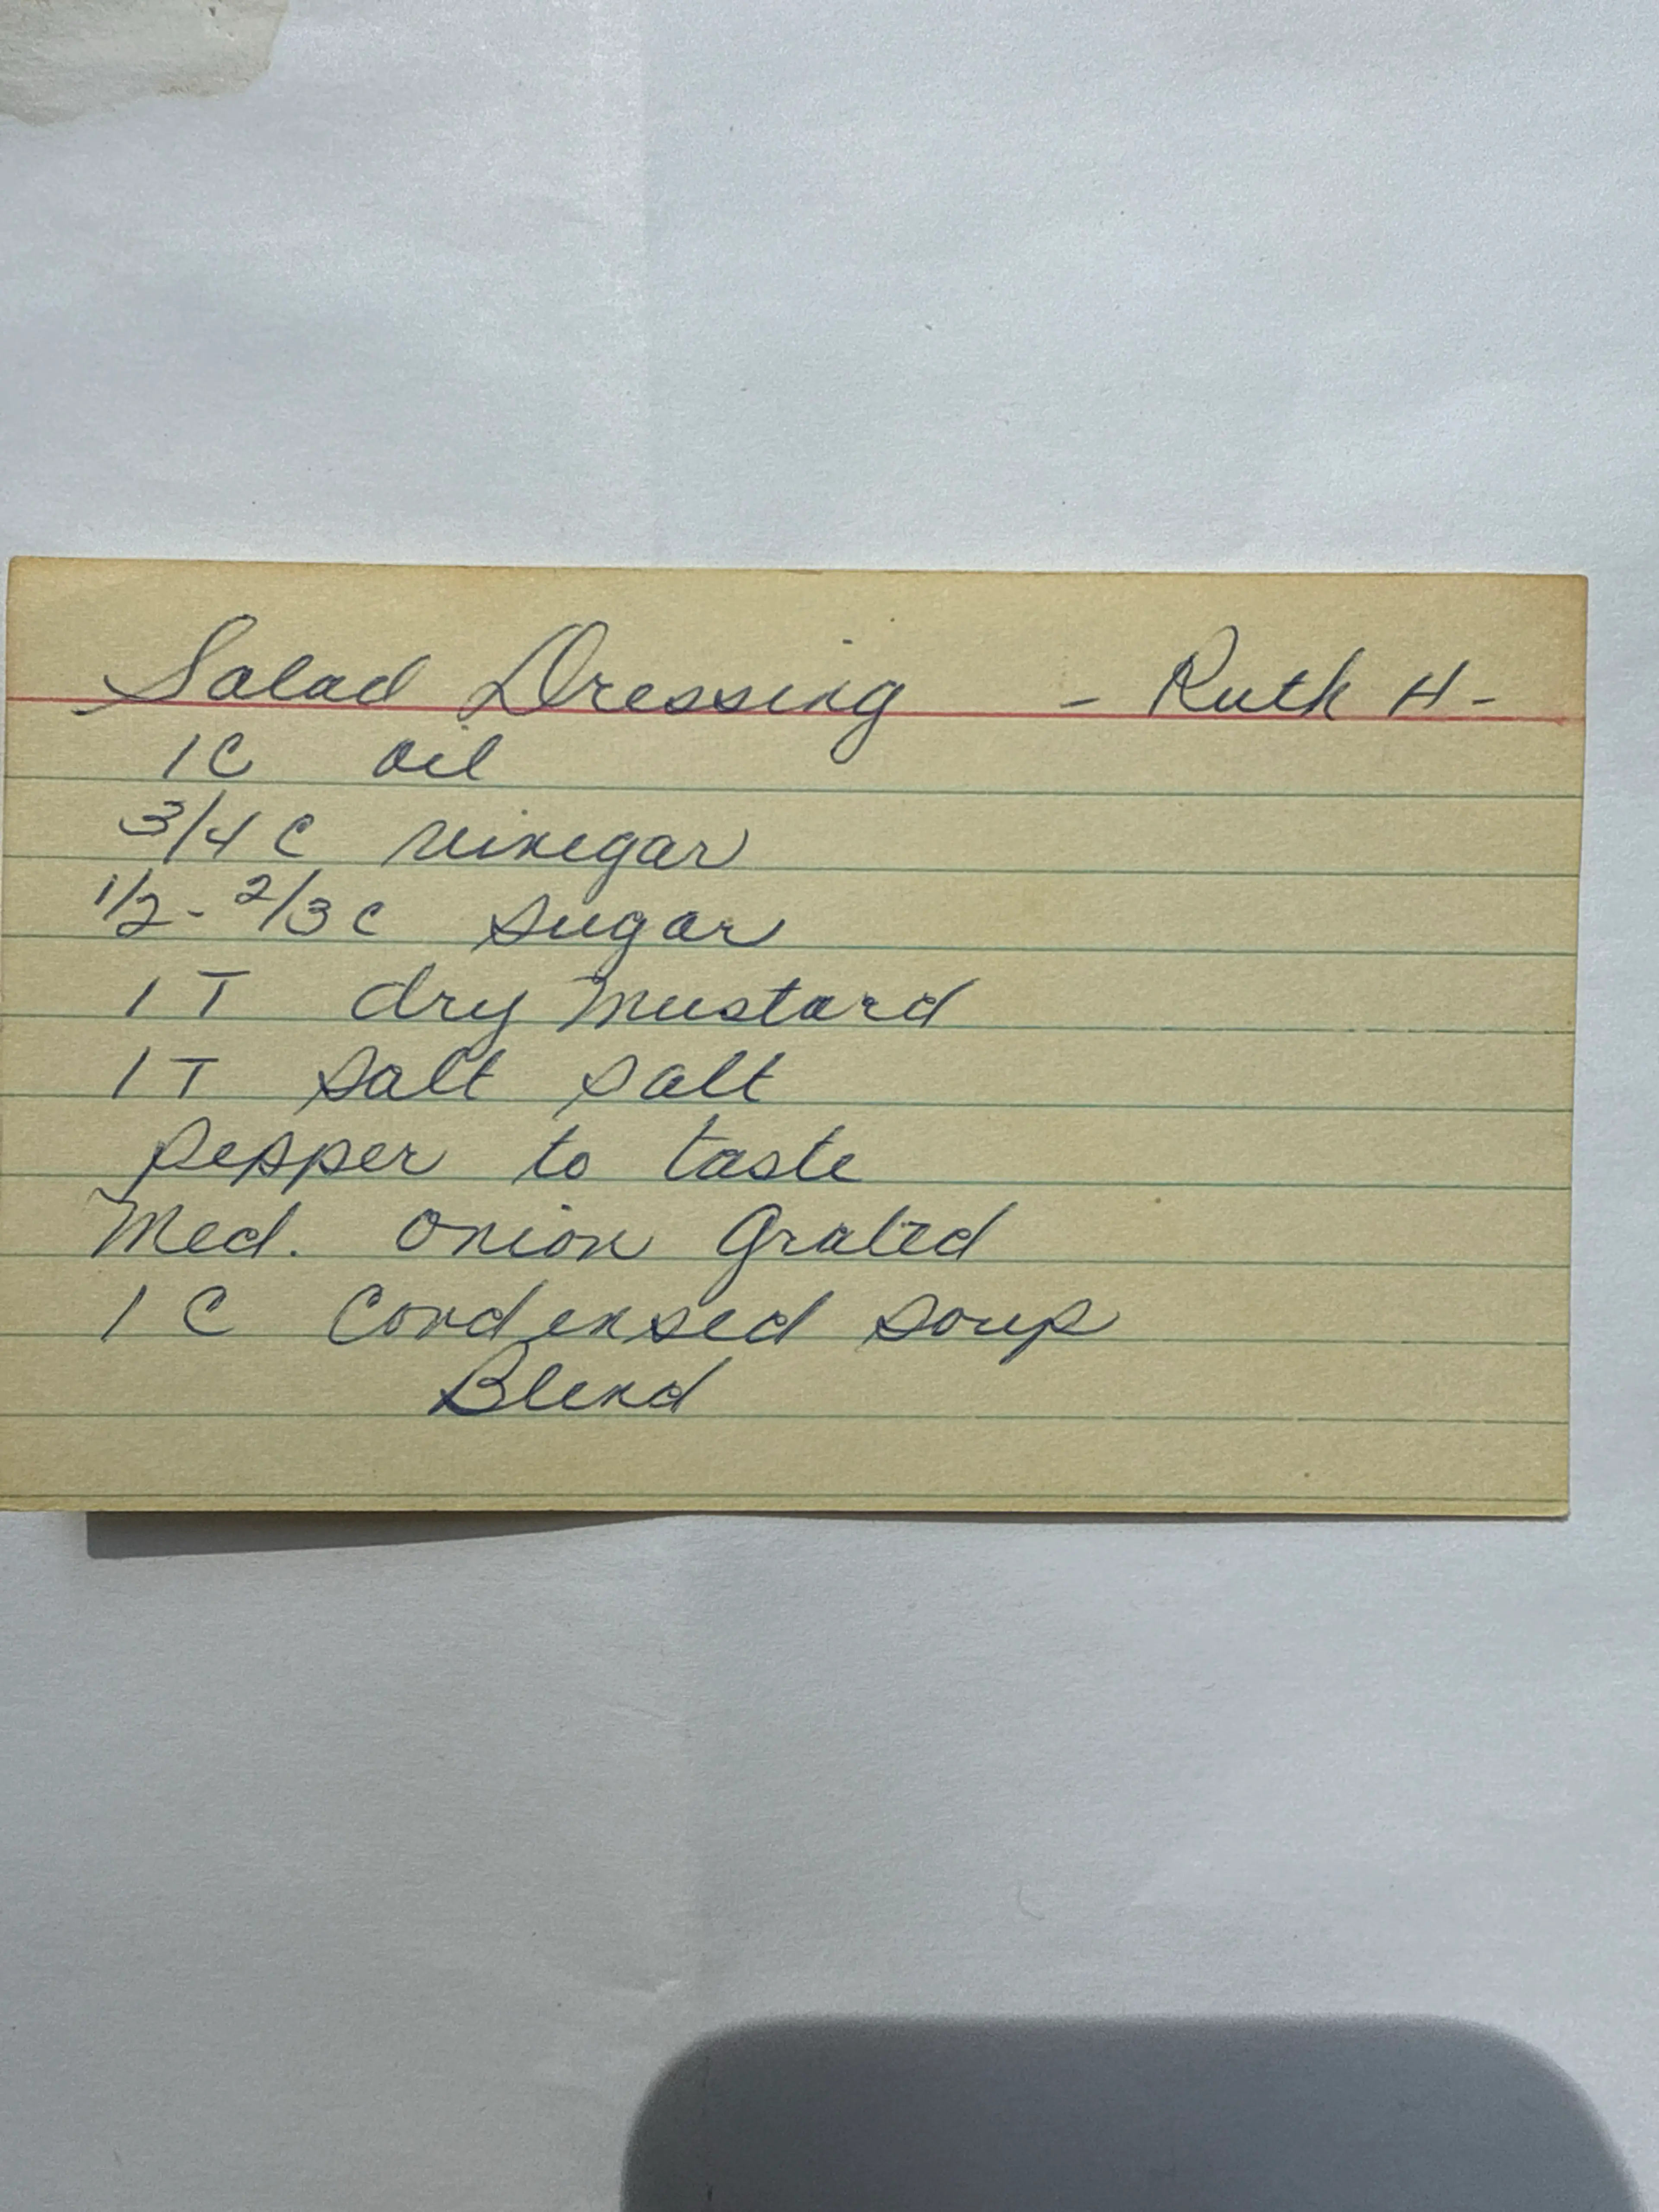 Salad Dressing - Ruth H-
1C oil
3/4 C vinegar
1/2 - 2/3 C sugar
1 T dry mustard
1 T salt salt
pepper to taste
Med. onion Grated
1 C Condensed soup
Blend